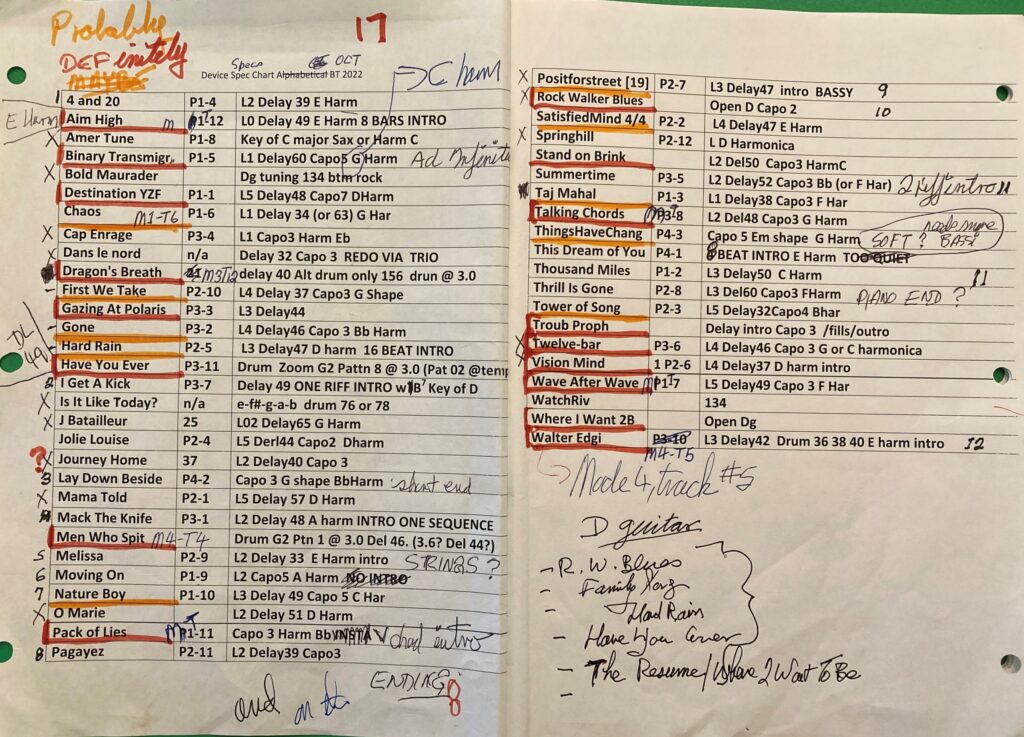 Probable
17
DEFinitely
MAYBE
Specs OCT
Device Spec Chart Alphabetical BT 2022
C harm
1 4 and 20 P1-4 L2 Delay 39 E Harm
E Harm Aim High P1-12 L0 Delay 49 E Harm 8 BARS INTRO
X Amer Tune P1-8 Key of C major Sax or Harm C
Binary Transmigr. P1-5 L1 Delay60 Capo5 G Harm Ad Infinit
X Bold Maurader Dg tuning 134 btm rock
Destination YZF P1-1 L5 Delay48 Capo7 DHarm
Chaos M1-T6 P1-6 L1 Delay 34 (or 63) G Har
X Cap Enrage P3-4 L1 Capo3 Harm Eb
X Dans le nord n/a Delay 32 Capo 3 REDO VIA TRIO
Dragon's Breath M3T12 delay 40 Alt drum only 156 drun @ 3.0
- First We Take P2-10 L4 Delay 37 Capo3 G Shape
Gazing At Polaris P3-3 L3 Delay44
DL 49 - Gone P3-2 L4 Delay46 Capo 3 Bb Harm
- Hard Rain P2-5 L3 Delay47 D harm 16 BEAT INTRO
Have You Ever P3-11 Drum Zoom G2 Pattn 8 @ 3.0 (Pat 02 @temp
2 I Get A Kick P3-7 Delay 49 ONE RIFF INTRO w B7 Key of D
X Is It Like Today? n/a e-f#-g-a-b drum 76 or 78
X J Batailleur 25 L02 Delay65 G Harm
Jolie Louise P2-4 L5 Derl44 Capo2 Dharm
? X Journey Home 37 L2 Delay40 Capo 3
3 Lay Down Beside P4-2 Capo 3 G shape BbHarm short end
X Mama Told P2-1 L5 Delay 57 D Harm
Mack The Knife P3-1 L2 Delay 48 A harm INTRO ONE SEQUENCE
Men Who Spit M4-T4 Drum G2 Ptn 1 @ 3.0 Del 46. (3.6? Del 44?)
5 Melissa P2-9 L2 Delay 33 E Harm intro STRINGS?
6 Moving On P1-9 L2 Capo5 A Harm NO INTRO
7 Nature Boy P1-10 L3 Delay 49 Capo 5 C Har
X O Marie P2-2 L2 Delay 51 D Harm
Pack of Lies P1-11 Capo 3 Harm Bb chod intro
8 Pagayez P2-11 L2 Delay39 Capo3
ENDING
8
and on the
X Positforstreet [19] P2-7 L3 Delay47 intro BASSY 9
X Rock Walker Blues Open D Capo 2 10
SatisfiedMind 4/4 P2-2 L4 Delay47 E Harm
X Springhill P2-12 L D Harmonica
Stand on Brink L2 Del50 Capo3 HarmC
Summertime P3-5 L2 Delay52 Capo3 Bb (or F Har) 2 diff intro
Taj Mahal P1-3 L1 Delay38 Capo3 F Har
Talking Chords P3-8 L2 Del48 Capo3 G Harm
ThingsHaveChang P4-3 Capo 5 Em shape G Harm SOFT? needs more BASS
This Dream of You P4-1 8 BEAT INTRO E Harm TOO QUIET
Thousand Miles P1-2 L3 Delay50 C Harm 11
Thrill Is Gone P2-8 L3 Del60 Capo3 FHarm PIANO END?
Tower of Song P2-3 L5 Delay32Capo4 Bhar
Troub Proph Delay intro Capo 3 /fills/outro
X Twelve-bar P3-6 L4 Delay46 Capo 3 G or C harmonica
Vision Mind 1 P2-6 L4 Delay37 D harm intro
Wave After Wave P1-7 L5 Delay49 Capo 3 F Har
WatchRiv 134
Where I Want 2B Open Dg
Walter Edgi P3-10 L3 Delay42 Drum 36 38 40 E harm intro 12
M4-T5
Mode 4, track #5
D guitar
- R.W. Blues
- Family
Hard Rain
- Have You Ever
- The Resume/Where I Want To Be
-